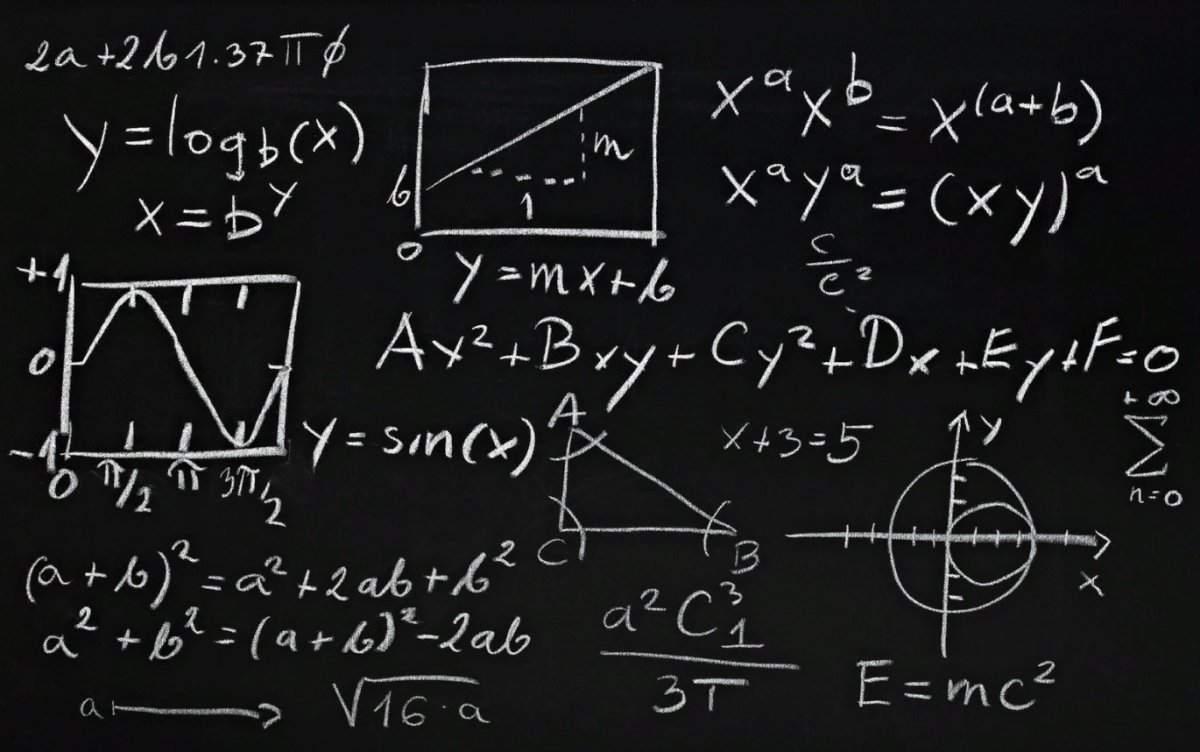 2a+2b1.37πφ
y=log_b(x)
x=b^y
m
b
1
0
y=mx+b
x^a x^b = x^(a+b)
x^a y^a = (xy)^a
c/c²
+1
0
-1
0 π/2 π 3π/2
y=sin(x)
Ay²+Bxy+Cy²+Dx+Ey+F=0
A
C
B
x+3=5
y
x
+∞
∑
n=0
(a+b)²=a²+2ab+b²
a²+b²=(a+b)²-2ab
a→
√16·a
a²C₁³
3T
E=mc²